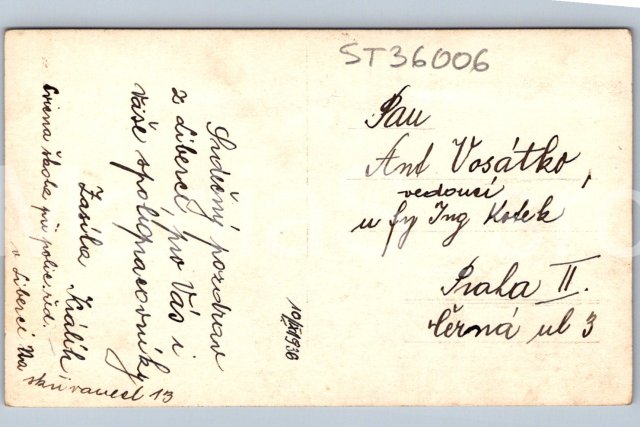 ST36006
Srdečný pozdrav
z Liberci, pro Vás i
Vaše spolupracovníky
Zasílá Králík
škola při polic. řid.
v Liberci Na
13
10/XI 1936
Pan
Ant Vosátko,
vedoucí
u fy Ing Kotek
Praha II.
Černá ul 3